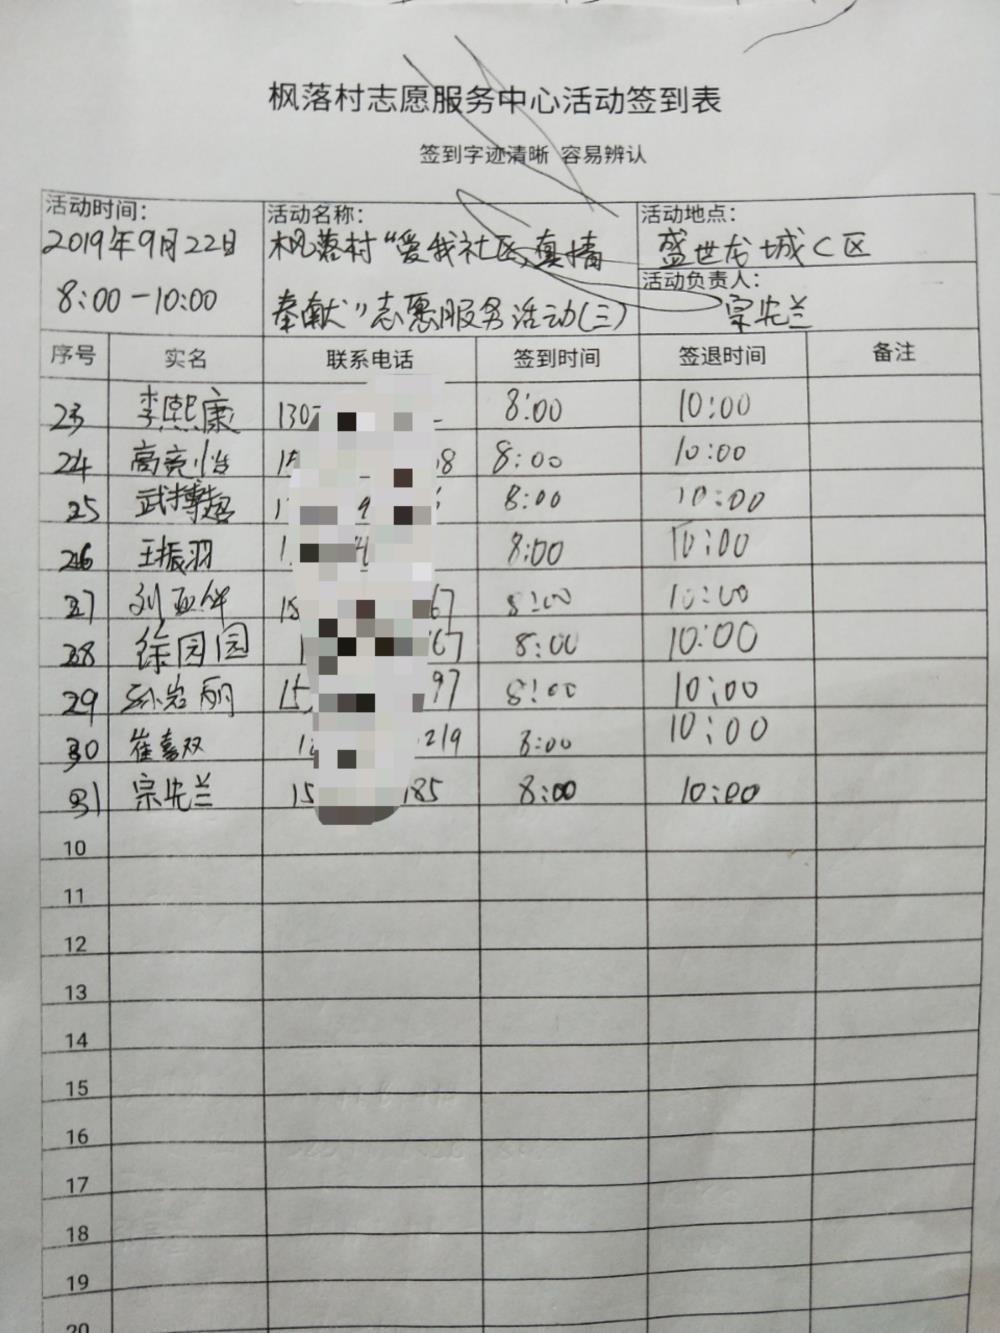 枫落村志愿服务中心活动签到表
签到字迹清晰 容易辨认
活动时间：
2019年9月22日
8:00-10:00
活动名称：
枫落村“爱我社区,真情
奉献”志愿服务活动(三)
活动地点：
盛世龙城C区
活动负责人：
宗先兰
序号 实名 联系电话 签到时间 签退时间 备注
23 李熙康 130 8:00 10:00
24 高竞怡 15 8 8:00 10:00
25 武博超 1 9 8:00 10:00
26 王振羽 1 8:00 10:00
27 刘亚华 15 67 8:00 10:00
28 徐园园 1 67 8:00 10:00
29 孙岩丽 15 97 8:00 10:00
30 崔喜双 1 219 8:00 10:00
31 宗先兰 15 185 8:00 10:00
10
11
12
13
14
15
16
17
18
19
20